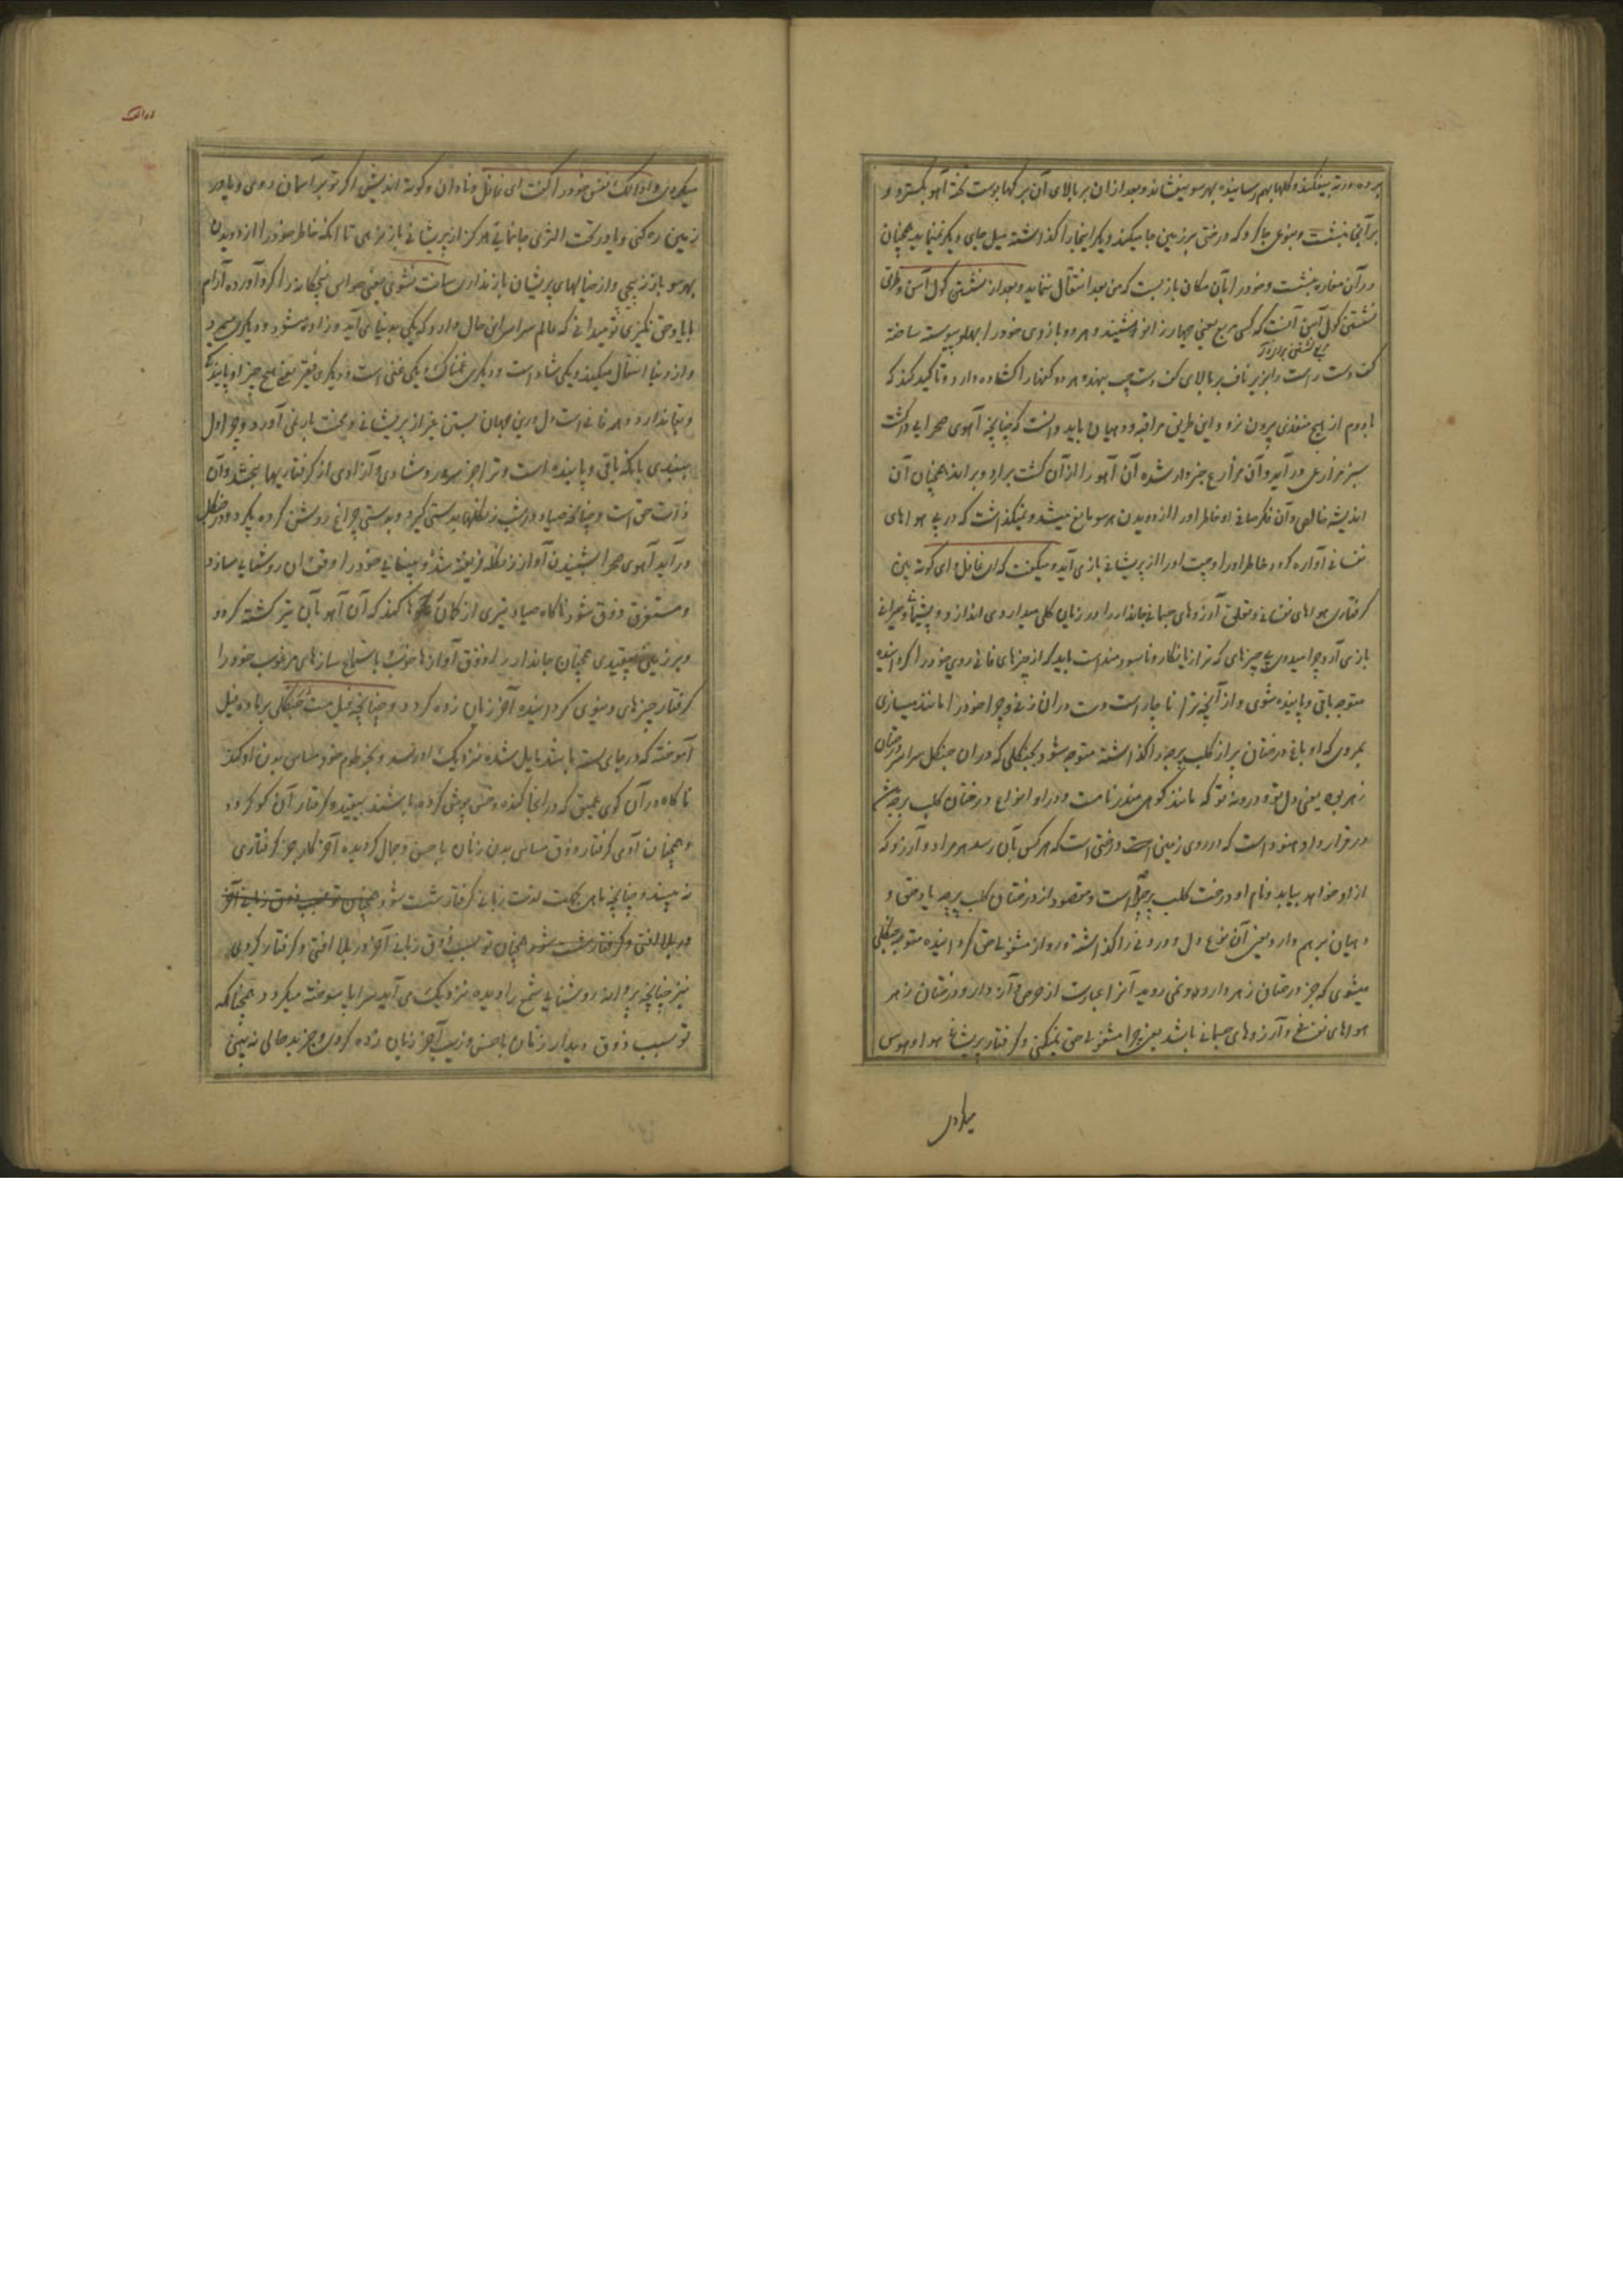 برده در ته بیفکند و گلها بهم رسانیده بهر سو بیفشاند و بعد از ان بر بالای آن برگها پوست تخته آهو بگسترد و
بر آنجا بنشست و بنوعی جا کرد که درختی بر زمین جا میکند و دیگر اینجا را گذاشته میل جای دیگر نمینماید همچنان
در آن مغاره بنشست و خود را بآن مکان باز بست که من بعد انتقال ننماید و بعد از نشستن کول آسن و طریق
نشستن کول آسن آنست که کسی مربع یعنی چهار زانو بنشیند و هر دو بازوی خود را بپهلو پیوسته ساخته
کف دست راست را بزیر ناف بر بالای کف دست چپ بنهد و هر دو کفها را کشاده دارد و تاکید کند که
تا دم از هیچ منفذی بیرون نرود و این طریق مراقبه و دهیان باید دانست که چنانچه آهوی صحرایی در کشت
سبز مزارعی در آید و آن مزارع خبردار شده آن آهو را از آن کشت بر آرد و براند همچنان آن
اندیشه خالص و آن فکر صافی او خاطر او را از دویدن هر سو مانع میشد و نمیگذاشت که در پی هواهای
نفسانی آواره گردد خاطر او را و چیت او را از پریشانی باز می آید و میگفت که ای غافل و ای کوته بین
گرفتاری هواهای نفسانی و تعلق آرزوهای جسمانی جاندار را در زیان کلی میدارد می اندازد و پشیمانی و حیرانی
بازی آرد چرا میدوی پی چیزهای که ترا زیانکار و ناسودمند است باید که از چیزهای فانی روی خود را گردانیده
متوجه باقی و پاینده شوی و از آنچه ترا ناچار است دست در ان زنی و چرا خود را مانند میسازی
بمردی که او باغ درختان پر از کلپ برچه را گذاشته متوجه شود بجنگلی که در ان جنگل سراسر درختان
زهر بود یعنی دل تو و درونه تو که مانند کوه مندر نام است و در او انواع درختان کلپ برچه
در قرار داد هنود است که در روی زمین است درختی است که هر کس بآن رسد هر مراد و آرزو که
از او خواهد بیابد و نام او درخت کلپ برچه است و مقصود از درختان کلپ برچه یاد حق و
دهیان برهم دارد یعنی آن نوع دل و درونه را گذاشته و رو از مشغولی حق گردانیده متوجه جنگلی
میشوی که جز درختان زهردار درو نمی روید آنرا عبارت از حرص و آز دار و درختان زهر
هواهای نفسانی و آرزوهای جسمانی باشد یعنی چرا مشغولی حق نمیکنی و گرفتار پریشانی هوا و هوس
میگردی
میگردی و اودالک نفس خود را گفت ای غافل و نادان و کوته اندیش اگر تو بر آسمان روی و یا در
زمین ره کنی و یا در تحت الثری جا نمایی هرگز از پریشانی باز نرهی تا آنکه خاطر خود را از دویدن
بهر سو باز نپیچی و از خیالهای پریشان باز نداری ساکت نشوی یعنی حواس پنجگانه را گرد آورده آرام
با یاد حق نگیری تو میدانی که عالم سراسر این حال دارد که یکی بدنیا می آید و زاده میشود و دیگری میمیرد
و از دنیا انتقال میکند و یکی شاد است و دیگری غمناک و یکی غنی است و دیگری فقیر یعنی هیچ چیز او پاینده
و بقا ندارد و همه فانی است دل درین جهان بستن غیر از پریشانی و محنت بار نمی آورد و چرا دل
نبندی با آنکه باقی و پاینده است و ترا جز سرور و شادی و آزادی از گرفتاریها بخشد و آن
ذات حق است و چنانچه صیاد در شب زنگلها بدستی گیرد و بدستی چراغ روشن کرده بگیرد و در جنگل
در آید آهوی صحرا بشنیدن آواز زنگله فریفته شده و بینایی خود را وقف آن روشنایی سازد
و مستغرق ذوق شود ناگاه صیاد تیری از کمان رها کند که آن آهو بآن تیر کشته گردد
و بر زمین بیفتد همچنان جاندار را ذوق آوازها خوش باستماع سازهای مرغوب خود را
گرفتار چیزهای دنیوی گردانیده آخر زیان زده گردد و چنانچه فیل مست جنگلی بر ماده فیل
آموخته که در جای بسته باشند مایل شده نزدیک او رسد و بخرطوم خود مساس بدن او کند
ناگاه در آن گوی عمیق که در انجا کنده و خس پوش کرده باشند بیفتد و گرفتار آن گو گردد
و همچنان آدمی گرفتار ذوق مساس بدن زنان با حسن و جمال گردیده آخر کار جز گرفتاری
نه بیند و چنانچه ماهی بجهت لذت زبانی گرفتار شست شود همچنان تو بسبب ذوق زبانی آخر
در بلا افتی و گرفتار شست شود همچنان تو بسبب ذوق زبانی آخر در بلا افتی و گرفتار گردی
نیز چنانچه پروانه روشنایی شمع را دیده نزدیک می آید سراپا سوخته میگردد همچنانکه
تو بسبب ذوق دیدار زنان با حسن و زیب آخر زیان زده گردی و جز بدحالی نه بینی